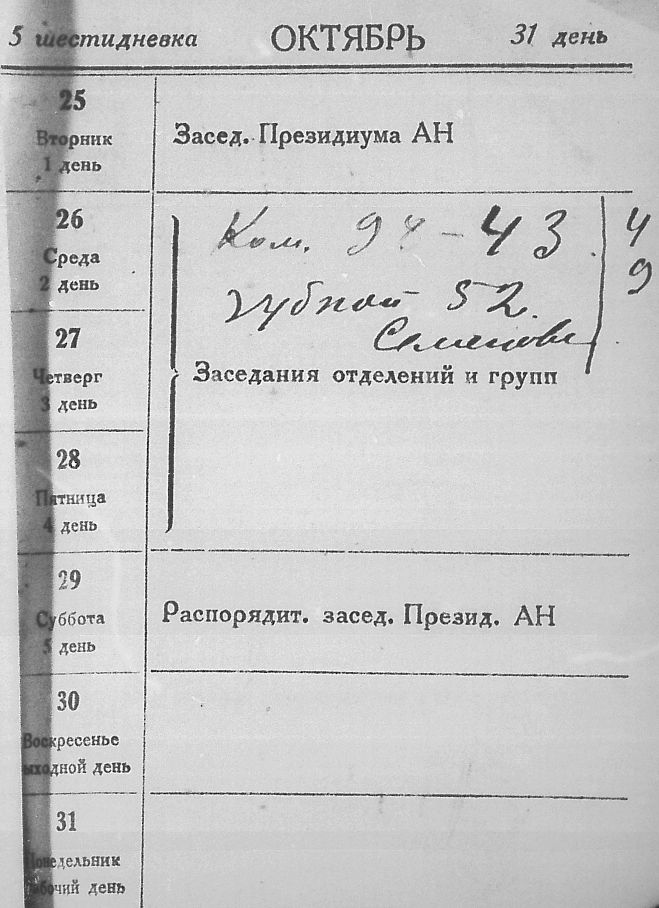 5 шестидневка ОКТЯБРЬ 31 день
25
Вторник
1 день
Засед. Президиума АН
26
Среда
2 день
Ком. 94-43. 4
9
зубной 52.
27
Четверг
3 день
Заседания отделений и групп
28
Пятница
4 день
29
Суббота
5 день
Распорядит. засед. Презид. АН
30
Воскресенье
выходной день
31
Понедельник
рабочий день